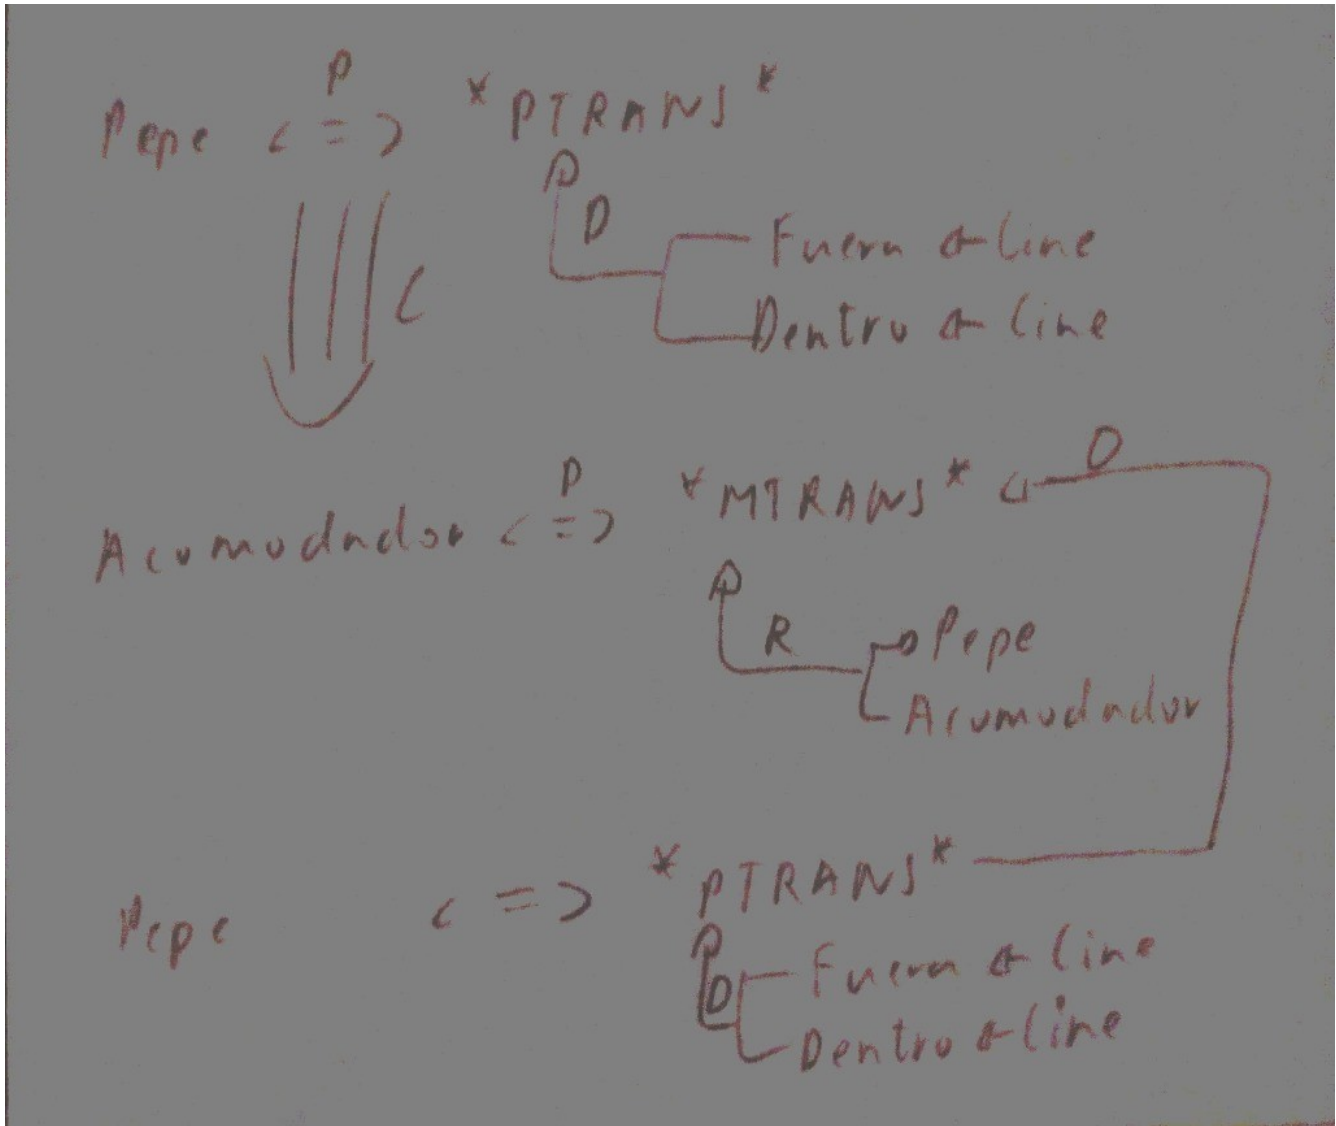 P
Pepe <=> *PTRANS*
D
Fuera ← Cine
C
Dentro ← Cine
O
P
Acomodador <=> *MTRANS*
R
Pepe
Acomodador
Pepe <=> *PTRANS*
D
Fuera ← Cine
Dentro ← Cine